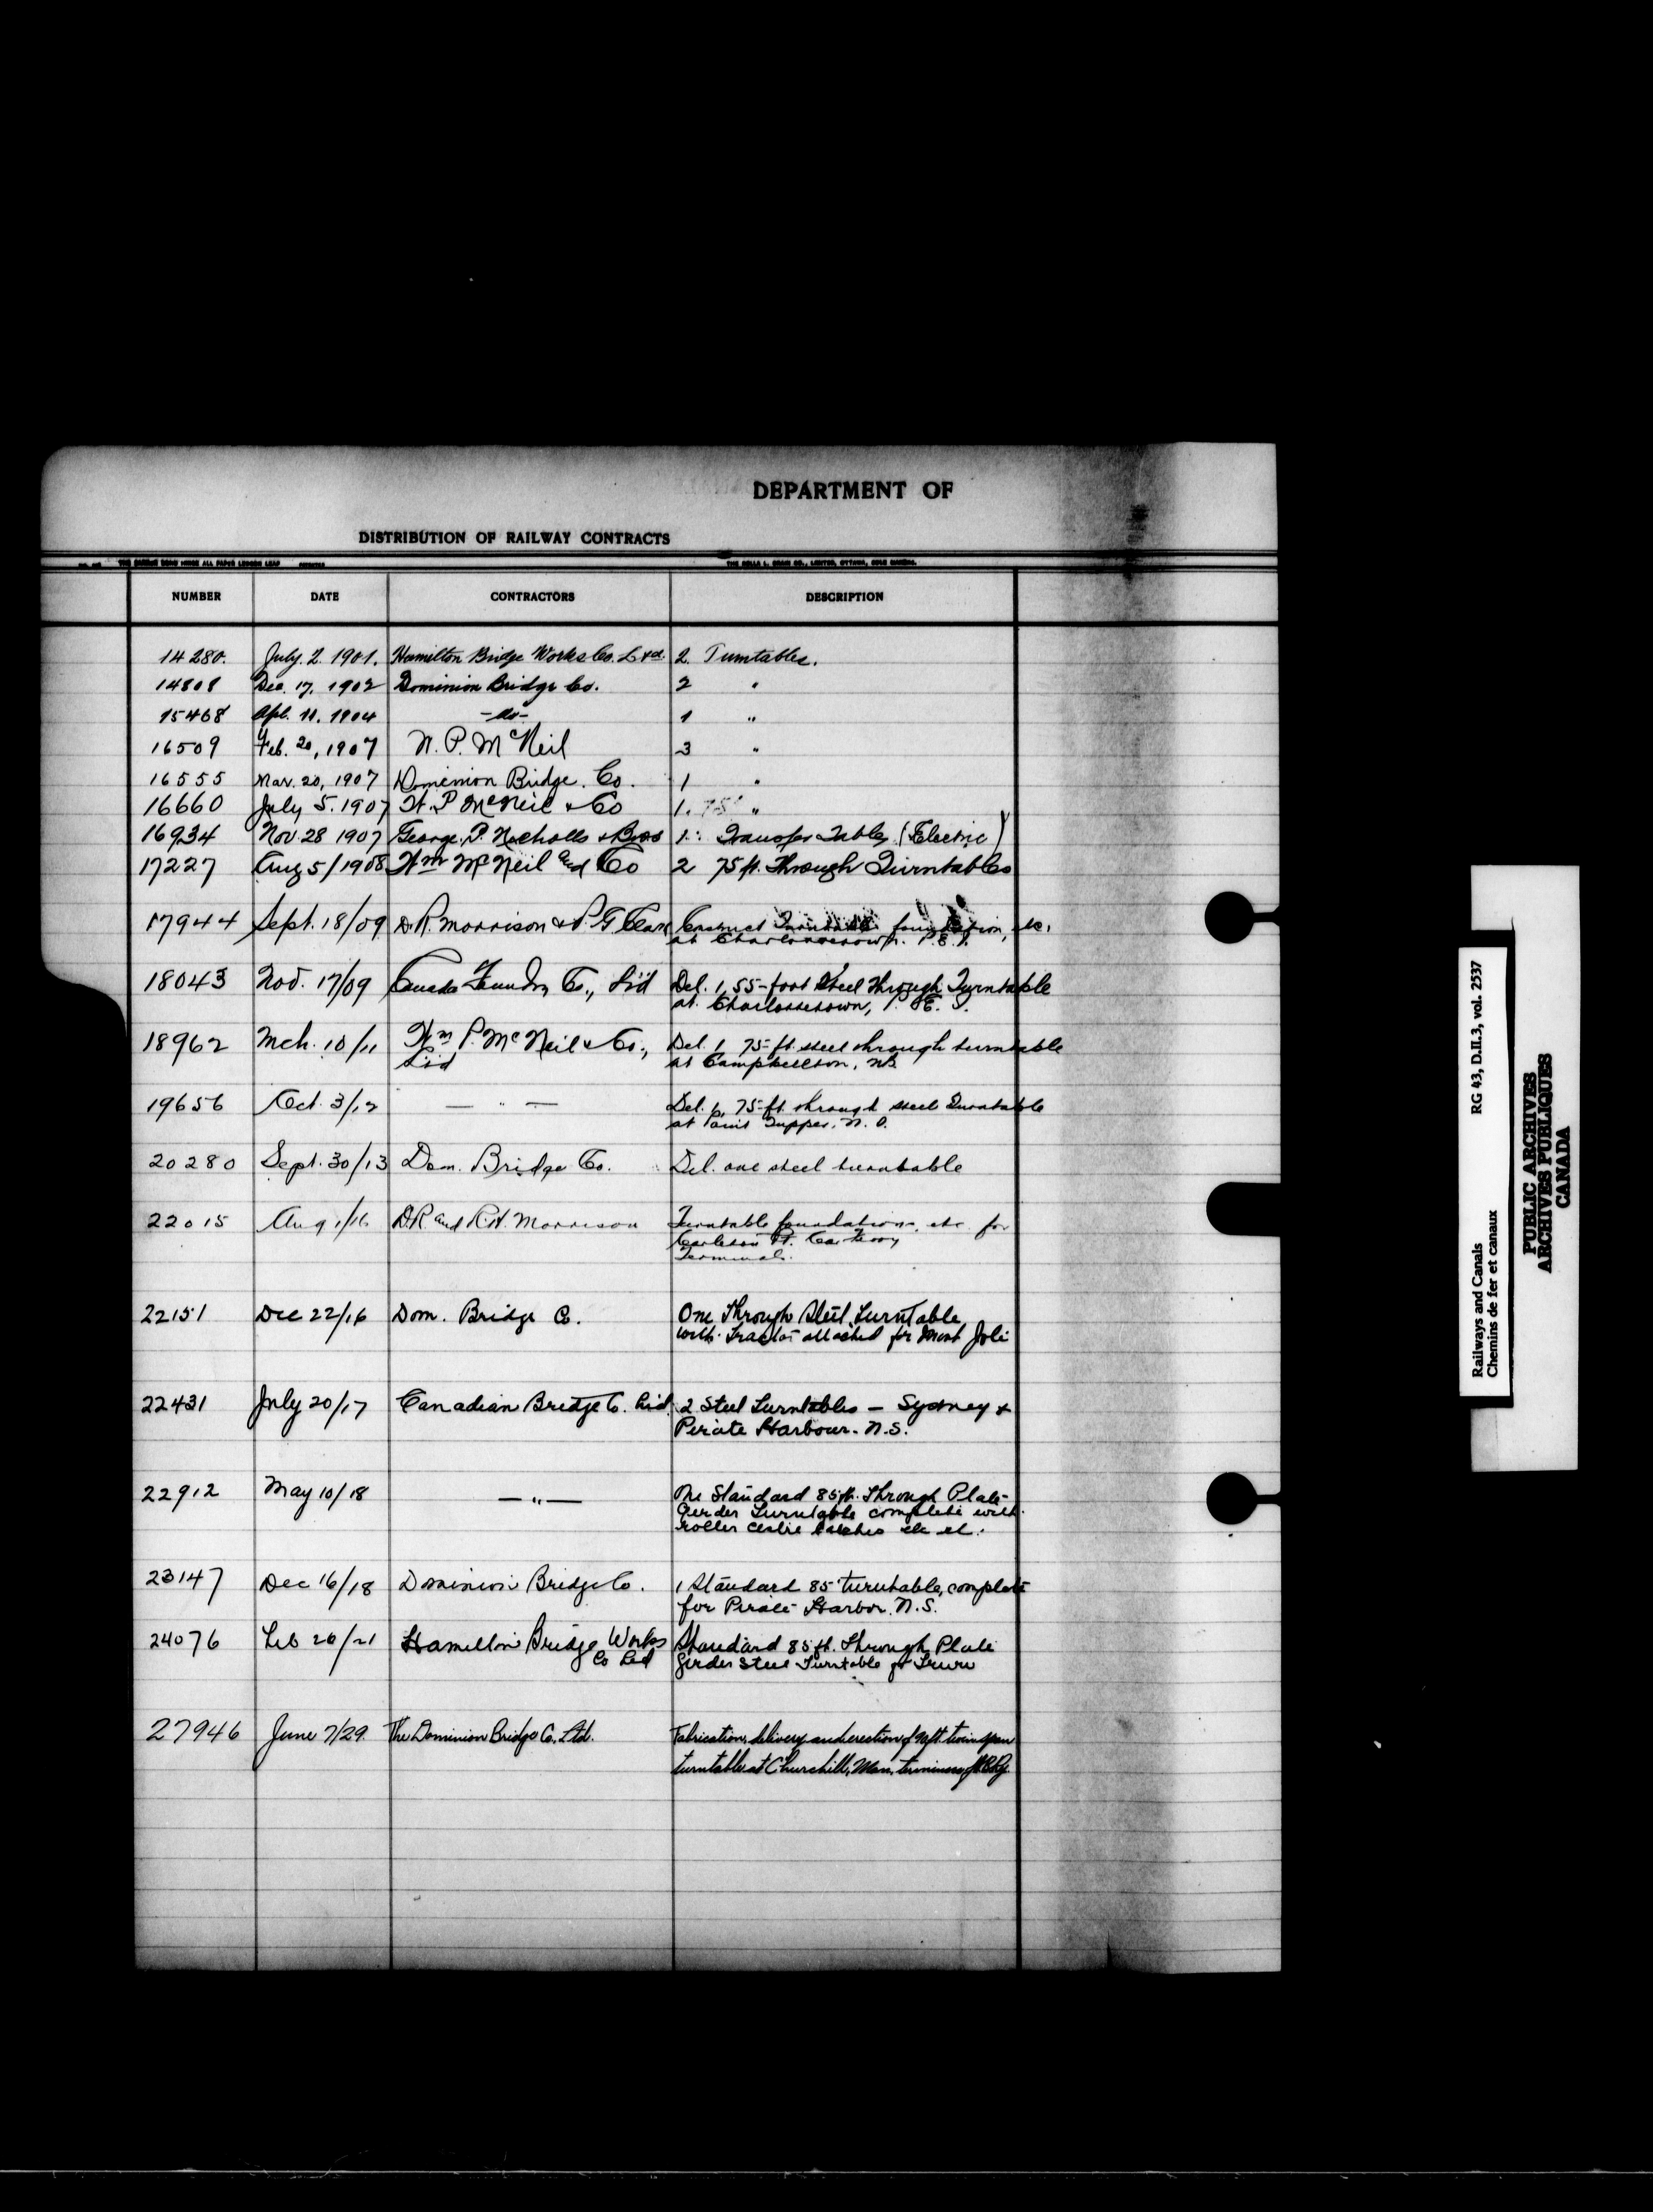 DEPARTMENT OF
DISTRIBUTION OF RAILWAY CONTRACTS
NUMBER DATE CONTRACTORS DESCRIPTION
14280. July. 2. 1901. Hamilton Bridge Works Co. Ltd. 2. Turntables.
14808 Dec. 17, 1902 Dominion Bridge Co. 2 "
15468 Apl. 11. 1904 -do- 1 "
16509 Feb. 20, 1907 W. P. McNeil 3 "
16555 Mar. 20, 1907 Dominion Bridge. Co. 1 "
16660 July 5. 1907 W. P McNeil & Co 1. 75' "
16934 Nov. 28 1907 George P. Nicholls & Bros 1. Transfer Table (Electric)
17227 Aug 5/1908 Wm McNeil and Co 2 75 ft. Through Turntables
17944 Sept. 18/09 D.R. Morrison & P. G Construct Turntable foundation, etc.
at Charlottetown. P.E.I.
18043 Nov. 17/09 Canada Foundry Co., Ltd Del. 1, 55-foot Steel Through Turntable
at Charlottetown, P. E. I.
18962 Mch. 10/11 Wm P. McNeil & Co., Del. 1 75-ft. steel through turntable
Ltd at Campbellton, NB
19656 Oct. 3/12 — " — Del. 1, 75-ft. through steel Turntable
at Point Tupper. N. S.
20280 Sept. 30/13 Dom. Bridge Co. Del. one steel turntable
22015 Aug 1/16 D.R. and R.H. Morrison Turntable foundations, etc. for
Carleton Pt. Car Ferry
Terminal.
22151 Dec 22/16 Dom. Bridge Co. One Through Steel Turntable
with Tractor attached for Mont Joli
22431 July 20/17 Canadian Bridge Co. Ltd. 2 Steel Turntables — Sydney &
Pirate Harbour. N.S.
22912 May 10/18 — " — One Standard 85 ft. Through Plate
Girder Turntable complete with
roller
23147 Dec 16/18 Dominion Bridge Co. 1 Standard 85' turntable, complete
for Pirate Harbor. N.S.
24076 Feb 26/21 Hamilton Bridge Works Standard 85 ft. Through Plate
Co Ltd Girder Steel Turntable for Truro
27946 June 7/29. The Dominion Bridge Co. Ltd. Fabrication, delivery and erection of twin span
turntable at Churchill, Man, terminus of
RG 43, D.II.3, vol. 2537
Railways and Canals
Chemins de fer et canaux
PUBLIC ARCHIVES
ARCHIVES PUBLIQUES
CANADA